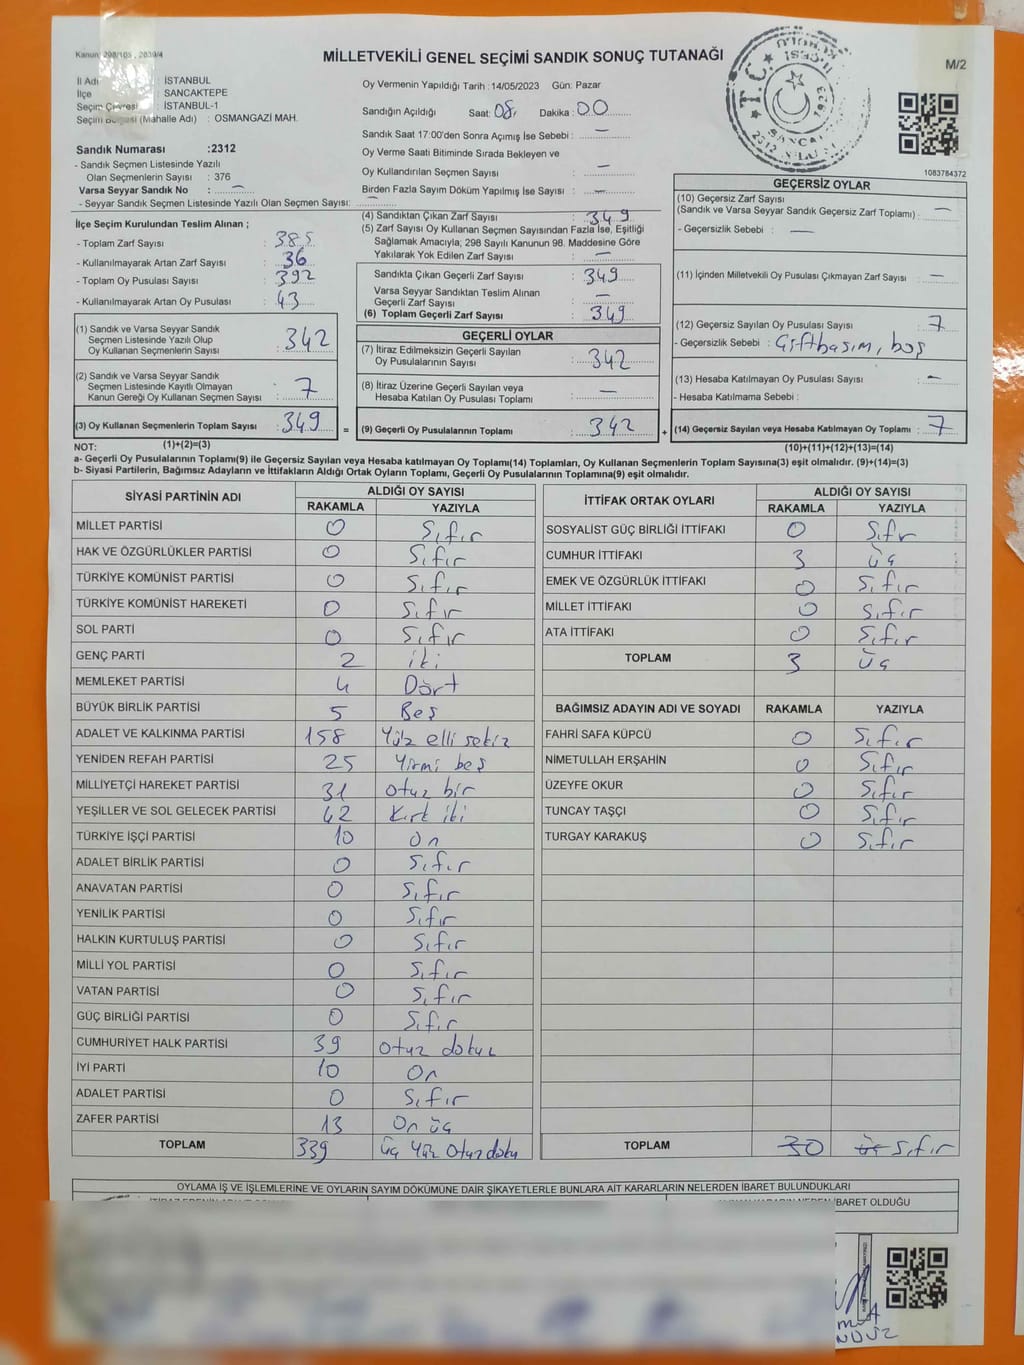 Kanun: 298/105, 2839/4
MİLLETVEKİLİ GENEL SEÇİMİ SANDIK SONUÇ TUTANAĞI
M/2
İl Adı : İSTANBUL
İlçe : SANCAKTEPE
Seçim Çevresi : İSTANBUL-1
Seçim Bölgesi (Mahalle Adı) : OSMANGAZİ MAH.
Sandık Numarası :2312
- Sandık Seçmen Listesinde Yazılı
Olan Seçmenlerin Sayısı : 376
Varsa Seyyar Sandık No : —
- Seyyar Sandık Seçmen Listesinde Yazılı Olan Seçmen Sayısı: —
Oy Vermenin Yapıldığı Tarih : 14/05/2023 Gün: Pazar
Sandığın Açıldığı Saat: 08 Dakika : 00
Sandık Saat 17:00'den Sonra Açımış İse Sebebi : —
Oy Verme Saati Bitiminde Sırada Bekleyen ve
Oy Kullandırılan Seçmen Sayısı : —
Birden Fazla Sayım Döküm Yapılmış İse Sayısı : —
T.C.
1083784372
İlçe Seçim Kurulundan Teslim Alınan ;
- Toplam Zarf Sayısı : 385
- Kullanılmayarak Artan Zarf Sayısı : 36
- Toplam Oy Pusulası Sayısı : 392
- Kullanılmayarak Artan Oy Pusulası : 43
(1) Sandık ve Varsa Seyyar Sandık
Seçmen Listesinde Yazılı Olup
Oy Kullanan Seçmenlerin Sayısı : 342
(2) Sandık ve Varsa Seyyar Sandık
Seçmen Listesinde Kayıtlı Olmayan
Kanun Gereği Oy Kullanan Seçmen Sayısı : 7
(3) Oy Kullanan Seçmenlerin Toplam Sayısı : 349
(1)+(2)=(3)
(4) Sandıktan Çıkan Zarf Sayısı : 349
(5) Zarf Sayısı Oy Kullanan Seçmen Sayısından Fazla İse, Eşitliği
Sağlamak Amacıyla; 298 Sayılı Kanunun 98. Maddesine Göre
Yakılarak Yok Edilen Zarf Sayısı : —
Sandıkta Çıkan Geçerli Zarf Sayısı : 349
Varsa Seyyar Sandıktan Teslim Alınan
Geçerli Zarf Sayısı : —
(6) Toplam Geçerli Zarf Sayısı : 349
GEÇERLİ OYLAR
(7) İtiraz Edilmeksizin Geçerli Sayılan
Oy Pusulalarının Sayısı : 342
(8) İtiraz Üzerine Geçerli Sayılan veya
Hesaba Katılan Oy Pusulası Toplamı : —
= (9) Geçerli Oy Pusulalarının Toplamı : 342 +
GEÇERSİZ OYLAR
(10) Geçersiz Zarf Sayısı
(Sandık ve Varsa Seyyar Sandık Geçersiz Zarf Toplamı) : —
- Geçersizlik Sebebi : —
(11) İçinden Milletvekili Oy Pusulası Çıkmayan Zarf Sayısı : —
(12) Geçersiz Sayılan Oy Pusulası Sayısı : 7
- Geçersizlik Sebebi : Çiftbasım, boş
(13) Hesaba Katılmayan Oy Pusulası Sayısı : —
- Hesaba Katılmama Sebebi :
(14) Geçersiz Sayılan veya Hesaba Katılmayan Oy Toplamı : 7
(10)+(11)+(12)+(13)=(14)
NOT:
a- Geçerli Oy Pusulalarının Toplamı(9) ile Geçersiz Sayılan veya Hesaba katılmayan Oy Toplamı(14) Toplamları, Oy Kullanan Seçmenlerin Toplam Sayısına(3) eşit olmalıdır. (9)+(14)=(3)
b- Siyasi Partilerin, Bağımsız Adayların ve İttifakların Aldığı Ortak Oyların Toplamı, Geçerli Oy Pusulalarının Toplamına(9) eşit olmalıdır.
SİYASİ PARTİNİN ADI ALDIĞI OY SAYISI
RAKAMLA YAZIYLA
MİLLET PARTİSİ 0 Sıfır
HAK VE ÖZGÜRLÜKLER PARTİSİ 0 Sıfır
TÜRKİYE KOMÜNİST PARTİSİ 0 Sıfır
TÜRKİYE KOMÜNİST HAREKETİ 0 Sıfır
SOL PARTİ 0 Sıfır
GENÇ PARTİ 2 iki
MEMLEKET PARTİSİ 4 Dört
BÜYÜK BİRLİK PARTİSİ 5 Beş
ADALET VE KALKINMA PARTİSİ 158 Yüz elli sekiz
YENİDEN REFAH PARTİSİ 25 Yirmi beş
MİLLİYETÇİ HAREKET PARTİSİ 31 otuz bir
YEŞİLLER VE SOL GELECEK PARTİSİ 42 Kırk iki
TÜRKİYE İŞÇİ PARTİSİ 10 On
ADALET BİRLİK PARTİSİ 0 Sıfır
ANAVATAN PARTİSİ 0 Sıfır
YENİLİK PARTİSİ 0 Sıfır
HALKIN KURTULUŞ PARTİSİ 0 Sıfır
MİLLİ YOL PARTİSİ 0 Sıfır
VATAN PARTİSİ 0 Sıfır
GÜÇ BİRLİĞİ PARTİSİ 0 Sıfır
CUMHURİYET HALK PARTİSİ 39 otuz dokuz
İYİ PARTİ 10 On
ADALET PARTİSİ 0 Sıfır
ZAFER PARTİSİ 13 On üç
TOPLAM 339 üç yüz otuz doku
İTTİFAK ORTAK OYLARI ALDIĞI OY SAYISI
RAKAMLA YAZIYLA
SOSYALİST GÜÇ BİRLİĞİ İTTİFAKI 0 Sıfır
CUMHUR İTTİFAKI 3 üç
EMEK VE ÖZGÜRLÜK İTTİFAKI 0 Sıfır
MİLLET İTTİFAKI 0 Sıfır
ATA İTTİFAKI 0 Sıfır
TOPLAM 3 üç
BAĞIMSIZ ADAYIN ADI VE SOYADI RAKAMLA YAZIYLA
FAHRİ SAFA KÜPCÜ 0 Sıfır
NİMETULLAH ERŞAHİN 0 Sıfır
ÜZEYFE OKUR 0 Sıfır
TUNCAY TAŞÇI 0 Sıfır
TURGAY KARAKUŞ 0 Sıfır
TOPLAM 30 üç sıfır
OYLAMA İŞ VE İŞLEMLERİNE VE OYLARIN SAYIM DÖKÜMÜNE DAİR ŞİKAYETLERLE BUNLARA AİT KARARLARIN NELERDEN İBARET BULUNDUKLARI
İBARET OLDUĞU